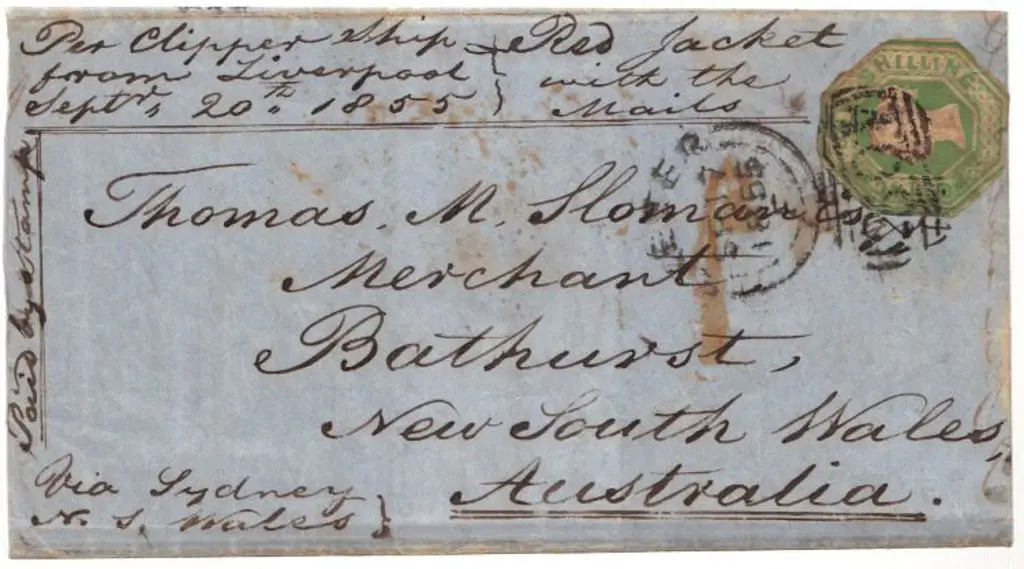 Per Clipper Ship } Red Jacket
from Liverpool } with the
Septr, 20th, 1855 } Mails
Paid by stamp
Thomas. M. Sloman Es
Merchant
Bathurst,
New South Wales,
Australia.
Via Sydney
N. S. Wales }
SHILLING
1855